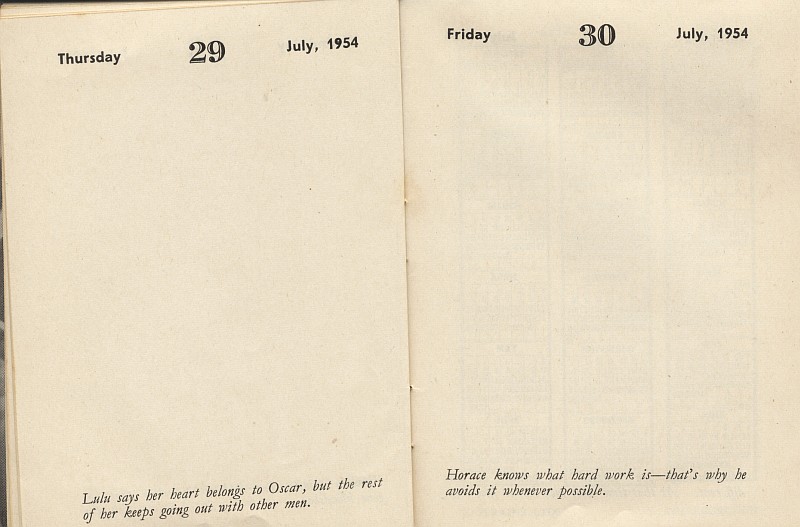 Thursday 29 July, 1954
Lulu says her heart belongs to Oscar, but the rest
of her keeps going out with other men.
Friday 30 July, 1954
Horace knows what hard work is—that's why he
avoids it whenever possible.